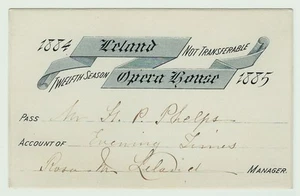 1884 Leland NOT TRANSFERABLE
TWELFTH SEASON Opera House 1885
PASS Mr. H. P. Phelps
ACCOUNT OF Evening Times
Rosa M Leland MANAGER.